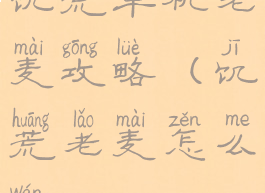 饥荒单机老
mài gōng lüè jī
麦攻略（饥
huāng lǎo mài zěn me
荒老麦怎么
wán